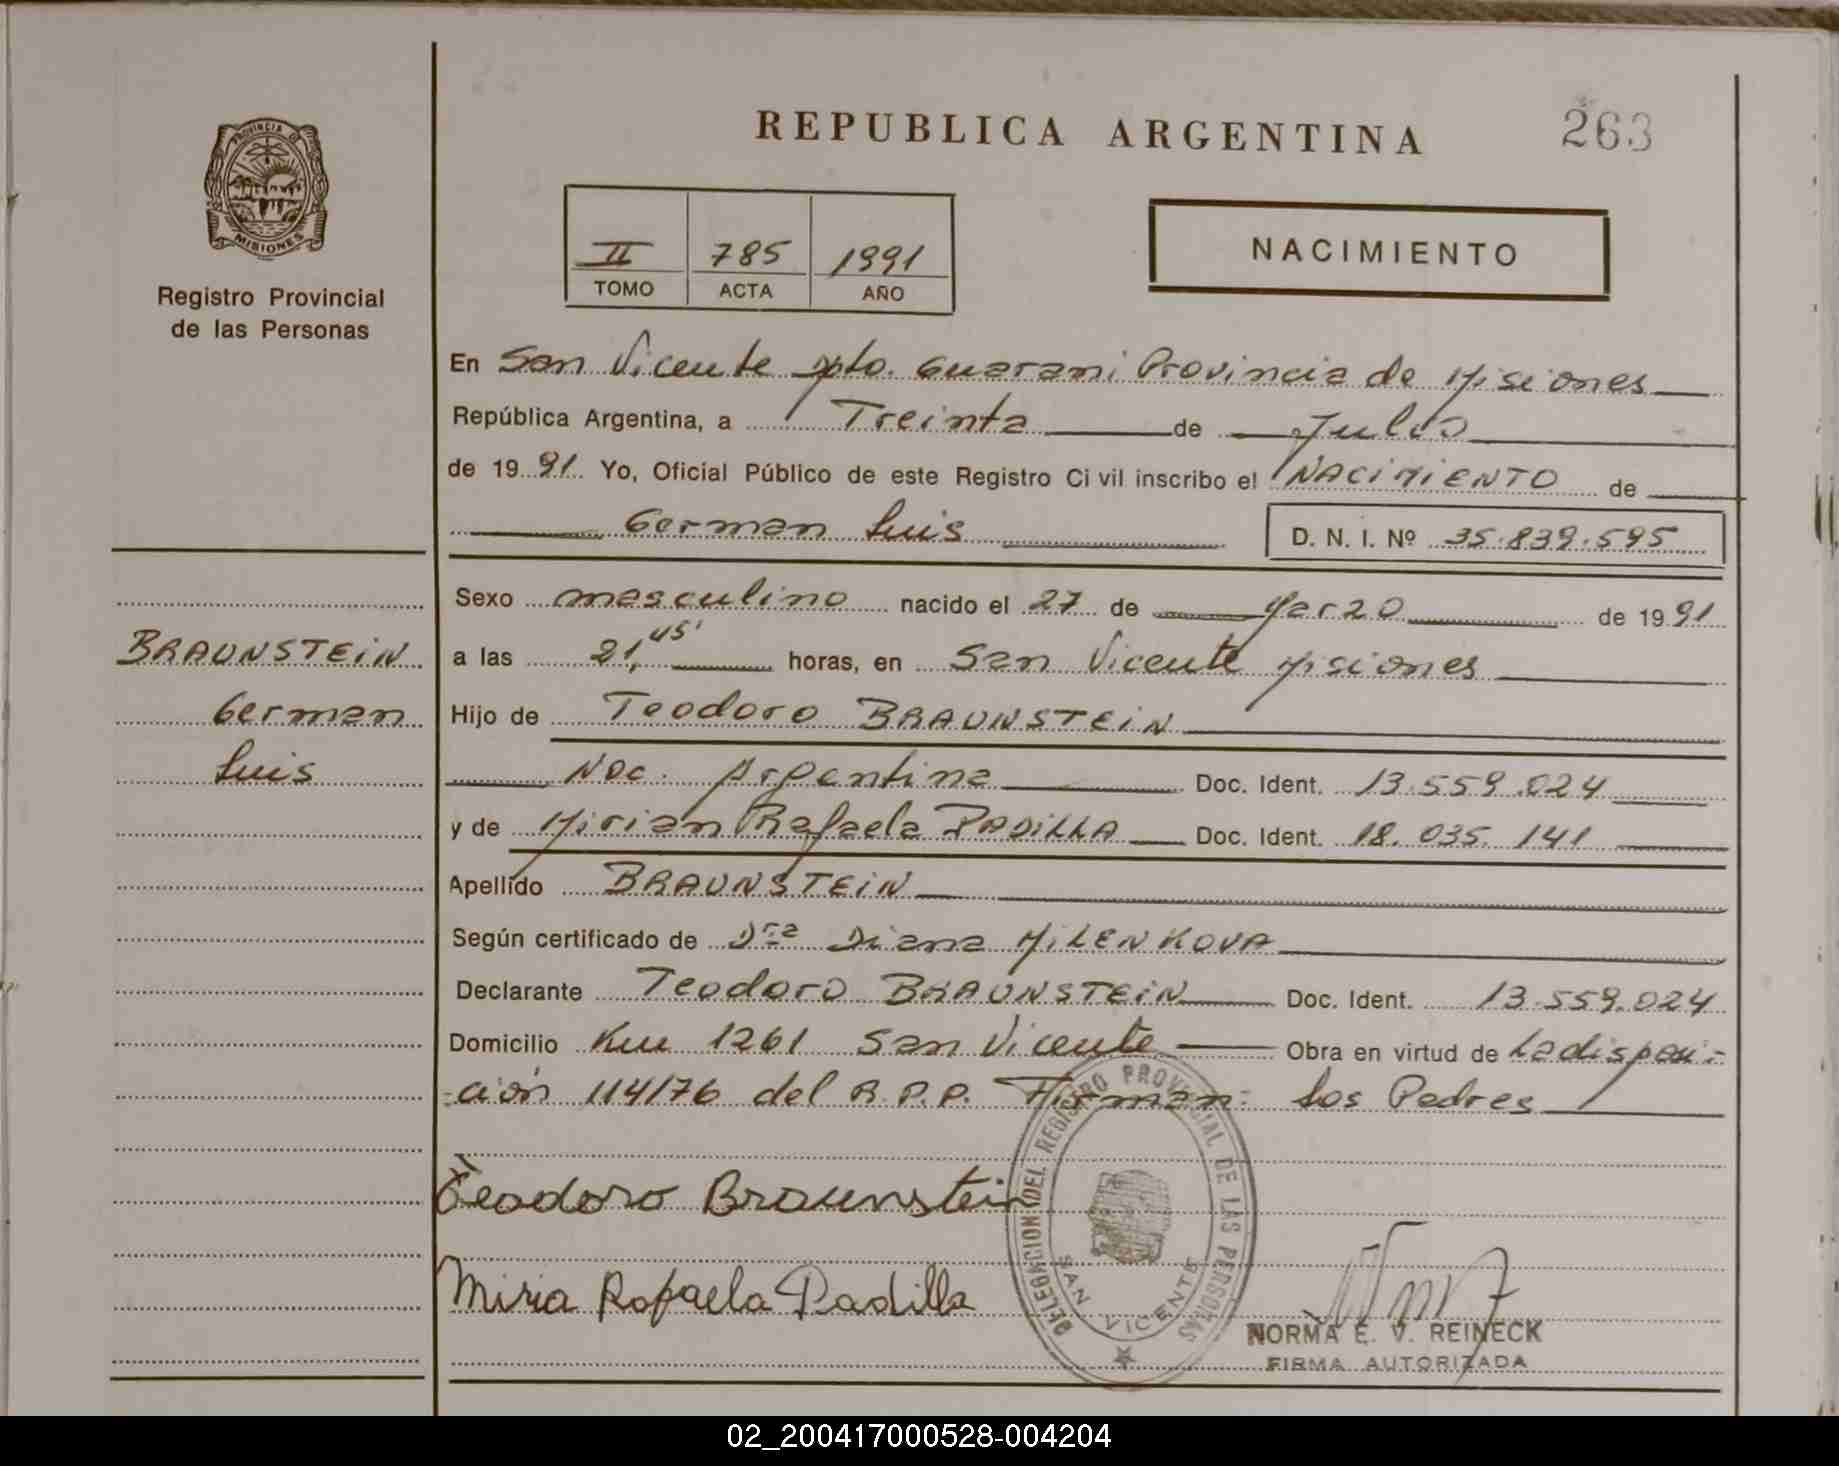 REPUBLICA ARGENTINA
263
PROVINCIA DE
MISIONES
Registro Provincial
de las Personas
II 785 1991
TOMO ACTA AÑO
NACIMIENTO
En San Vicente Dpto. Guarani Provincia de Misiones
República Argentina, a Treinta de Julio
de 1991 Yo, Oficial Público de este Registro Civil inscribo el NACIMIENTO de
German Luis
D. N. I. Nº 35.839.595
BRAUNSTEIN
German
Luis
Sexo masculino nacido el 27 de Marzo de 1991
a las 21,45' horas, en San Vicente Misiones
Hijo de Teodoro BRAUNSTEIN
Nac. Argentina Doc. Ident. 13.559.024
y de Mirian Rafaela PADILLA Doc. Ident. 18.035.141
Apellido BRAUNSTEIN
Según certificado de Dra Diana MILENKOVA
Declarante Teodoro BRAUNSTEIN Doc. Ident. 13.559.024
Domicilio Km 1261 San Vicente Obra en virtud de La disposi-
-ción 114/76 del R.P.P. Firman: Los Padres
Teodoro Braunstein
Miria Rafaela Padilla
DELEGACION DEL REGISTRO PROVINCIAL DE LAS PERSONAS
SAN VICENTE
NORMA E. V. REINECK
FIRMA AUTORIZADA
02_200417000528-004204